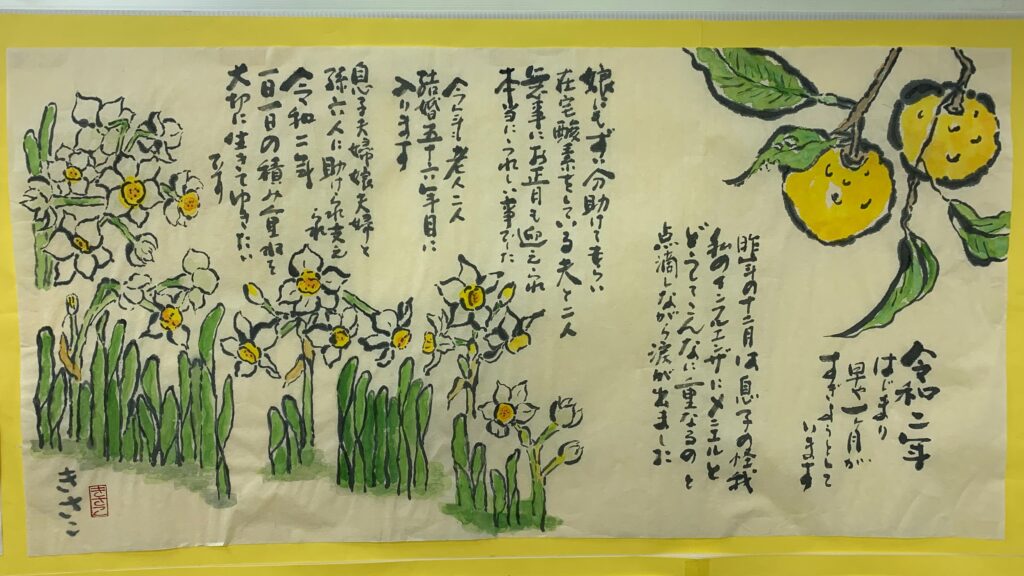 令和二年
はじまり
早や一ヶ月が
すぎようとして
います
昨年の十二月は息子の怪我
私のインフルエンザにメニエルと
どうしてこんなに重なるの と
点滴しながら涙が出ました
娘にもずい分助けてもらい
在宅酸素をしている夫と二人
無事にお正月も迎えられ
本当にうれしい事でした
今年老人二人
結婚五十六年目に
入ります
息子夫婦娘夫婦と
孫六人に助けられ支えられ
令和二年
一日一日の積み重ねを
大切に生きてゆきたい
です
きさこ